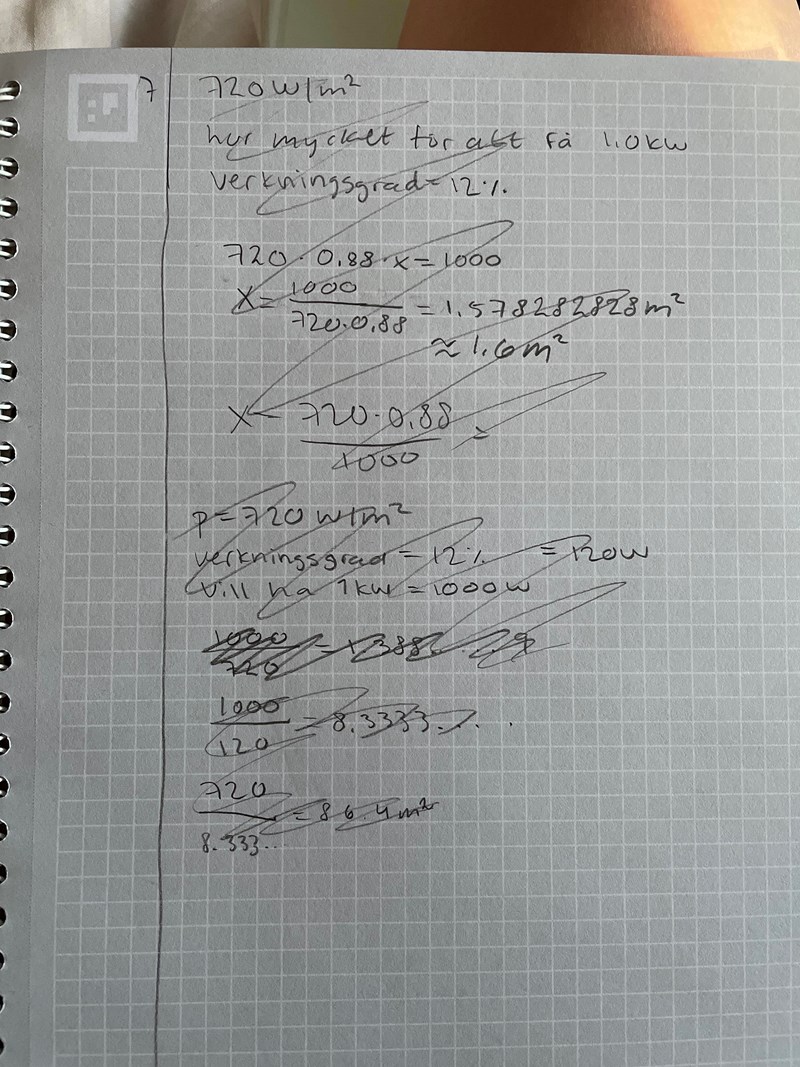 7 720 W/m²
hur mycket för att få 1.0 kW
verkningsgrad = 12%
720 · 0.88 · x = 1000
x = 1000 / 720·0.88 = 1.578282828 m²
≈ 1.6 m²
x = 720·0.88 / 1000 =
P = 720 W/m²
verkningsgrad = 12% = 120W
vill ha 1kW = 1000W
1000 / 720 = 1.388
1000 / 120 = 8.3333...
720 / 8.333.. = 86.4 m²